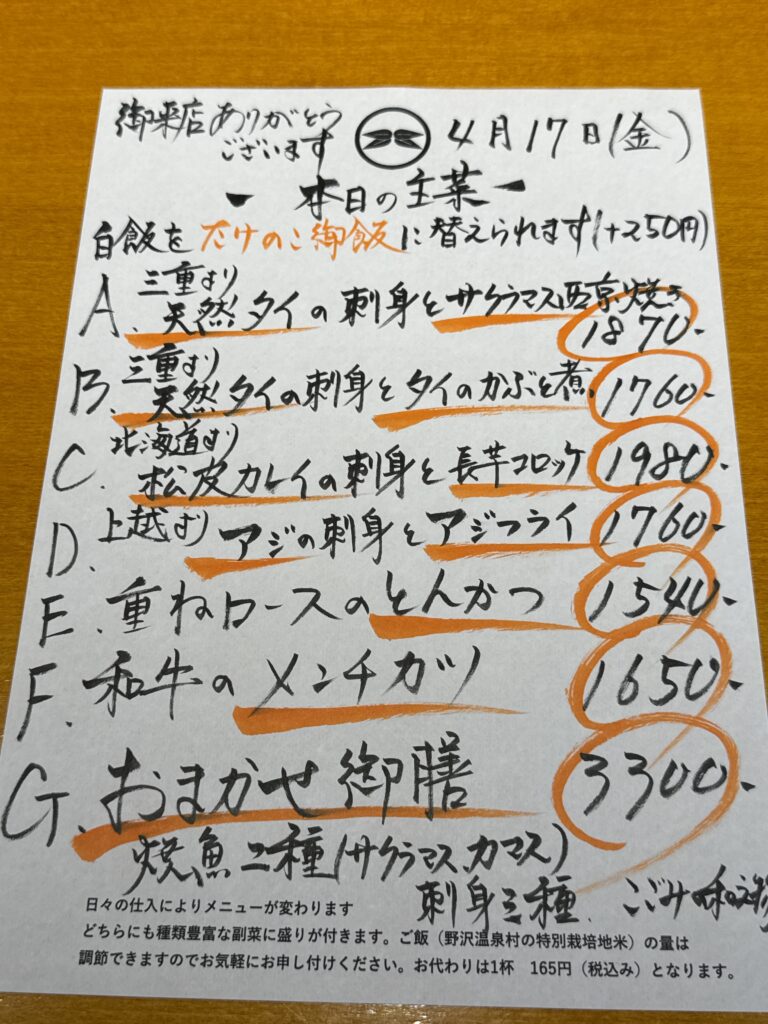 御来店ありがとう
ございます
4月17日(金)
ー 本日の主菜 ー
白飯をたけのこ御飯に替えられます(+250円)
三重より
A. 天然タイの刺身とサクラマス西京焼き
1870-
三重より
B. 天然タイの刺身とタイのかぶと煮 1760-
北海道より
C. 松皮カレイの刺身と長芋コロッケ 1980-
D. 上越より アジの刺身とアジフライ 1760-
E. 重ねロースのとんかつ 1540-
F. 和牛のメンチカツ 1650-
G. おまかせ御膳 3300-
焼魚二種(サクラマス カマス)
刺身三種、こごみの和え物
日々の仕入によりメニューが変わります
どちらにも種類豊富な副菜に盛りが付きます。ご飯(野沢温泉村の特別栽培地米)の量は
調節できますのでお気軽にお申し付けください。お代わりは1杯 165円(税込み)となります。